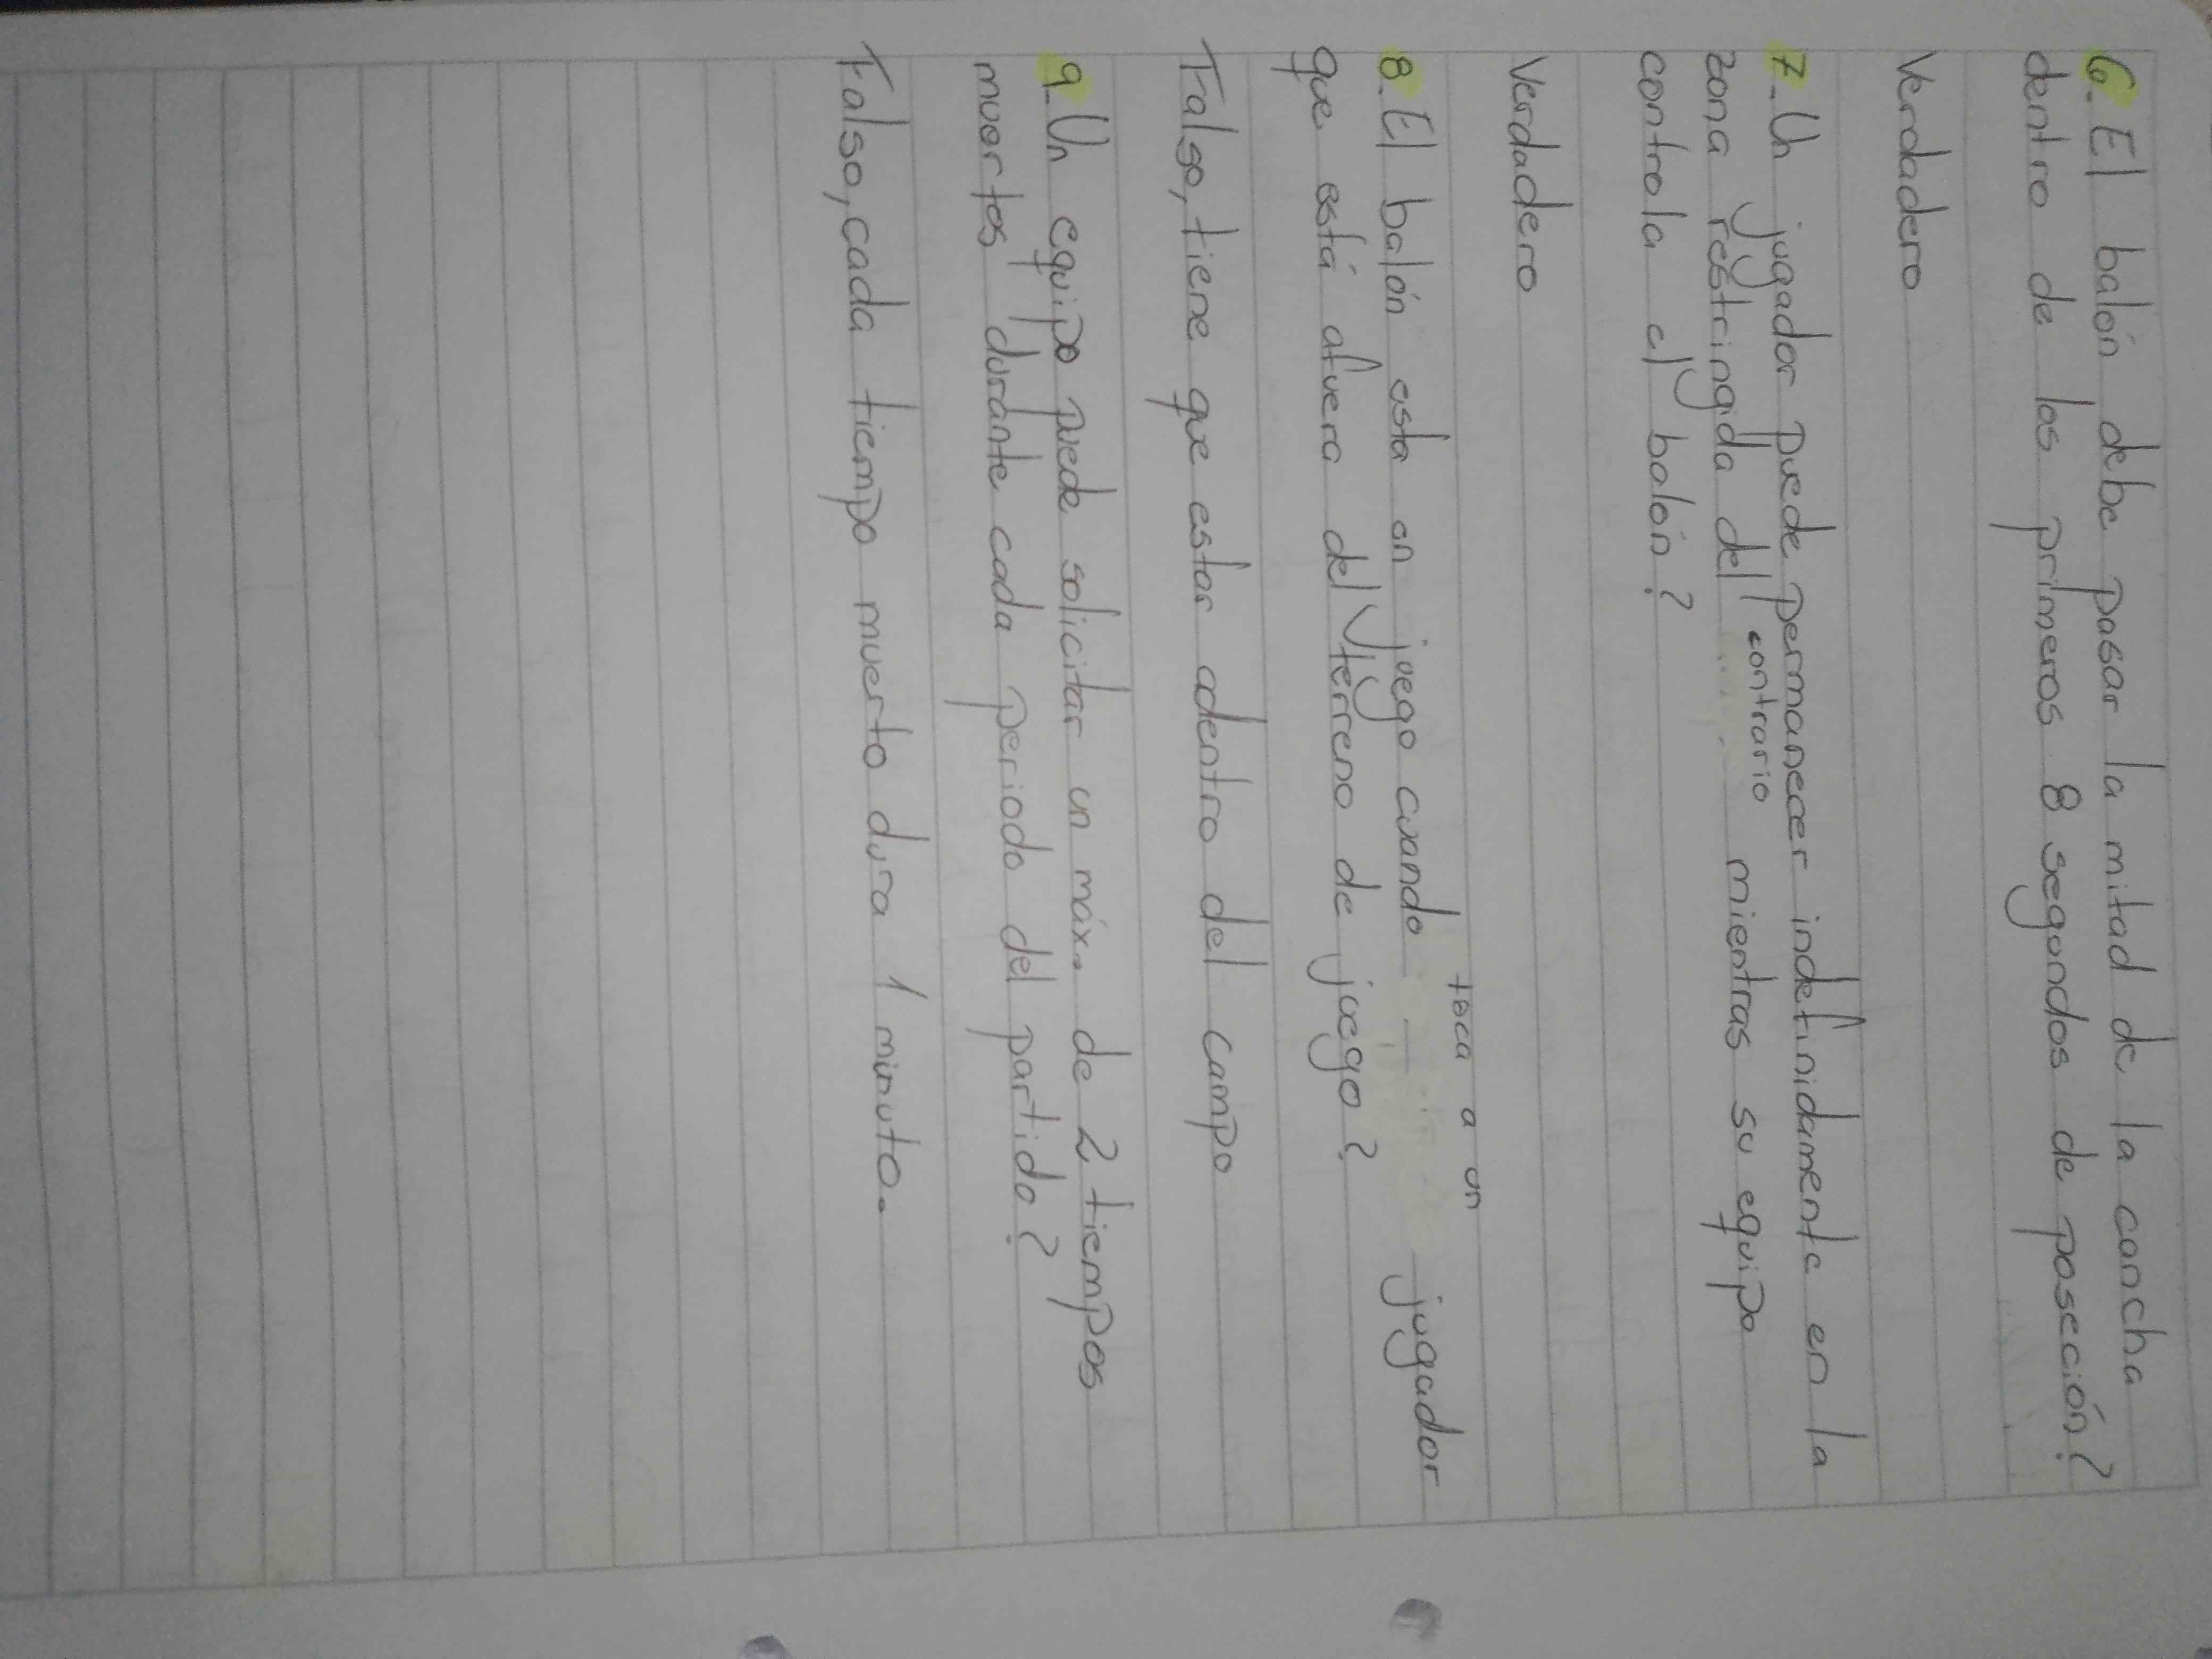 6. El balón debe pasar la mitad de la cancha
dentro de los primeros 8 segundos de poseción?
Verdadero
7-Un jugador puede permanecer indefinidamente en la
zona restringida del contrario mientras su equipo
controla el balón?
Verdadero
8. El balón esta en juego cuando toca a un jugador
que está afuera del terreno de juego?
Falso, tiene que estar adentro del campo
9-Un equipo puede solicitar un máx. de 2 tiempos
muertos durante cada periodo del partido?
Falso, cada tiempo muerto dura 1 minuto.